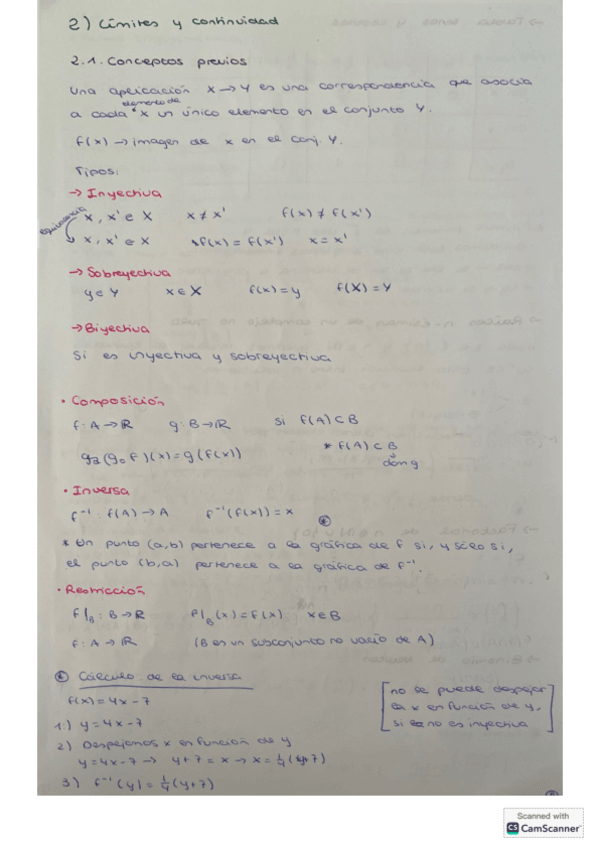 2) Límites y continuidad
2.1. Conceptos previos
Una aplicación X → Y es una correspondencia que asocia
elemento de
a cada X un único elemento en el conjunto Y.
f(x) → imagen de x en el conj. Y.
Tipos:
→ Inyectiva
x, x' ∈ X x ≠ x' f(x) ≠ f(x')
equivalencia
x, x' ∈ X f(x) = f(x') x = x'
→ Sobreyectiva
y ∈ Y x ∈ X f(x) = y f(X) = Y
→ Biyectiva
Si es inyectiva y sobreyectiva
• Composición
f: A → ℝ g: B → ℝ si f(A) ⊂ B
(g∘f)(x) = g(f(x)) * f(A) ⊂ B
dom g
• Inversa
f⁻¹: f(A) → A f⁻¹(f(x)) = x
* Un punto (a,b) pertenece a la gráfica de f si, y sólo si,
el punto (b,a) pertenece a la gráfica de f⁻¹.
• Restricción
f|B : B → ℝ f|B (x) = f(x) x ∈ B
f: A → ℝ (B es un subconjunto no vacío de A)
Cálculo de la inversa
f(x) = 4x - 7
1.) y = 4x - 7
2) Despejamos x en función de y
y = 4x - 7 → y + 7 = x → x = ¼ (y+7)
3) f⁻¹ (y) = ¼ (y+7)
[no se puede despejar
la x en función de y,
si no es inyectiva]
Scanned with
CS CamScanner